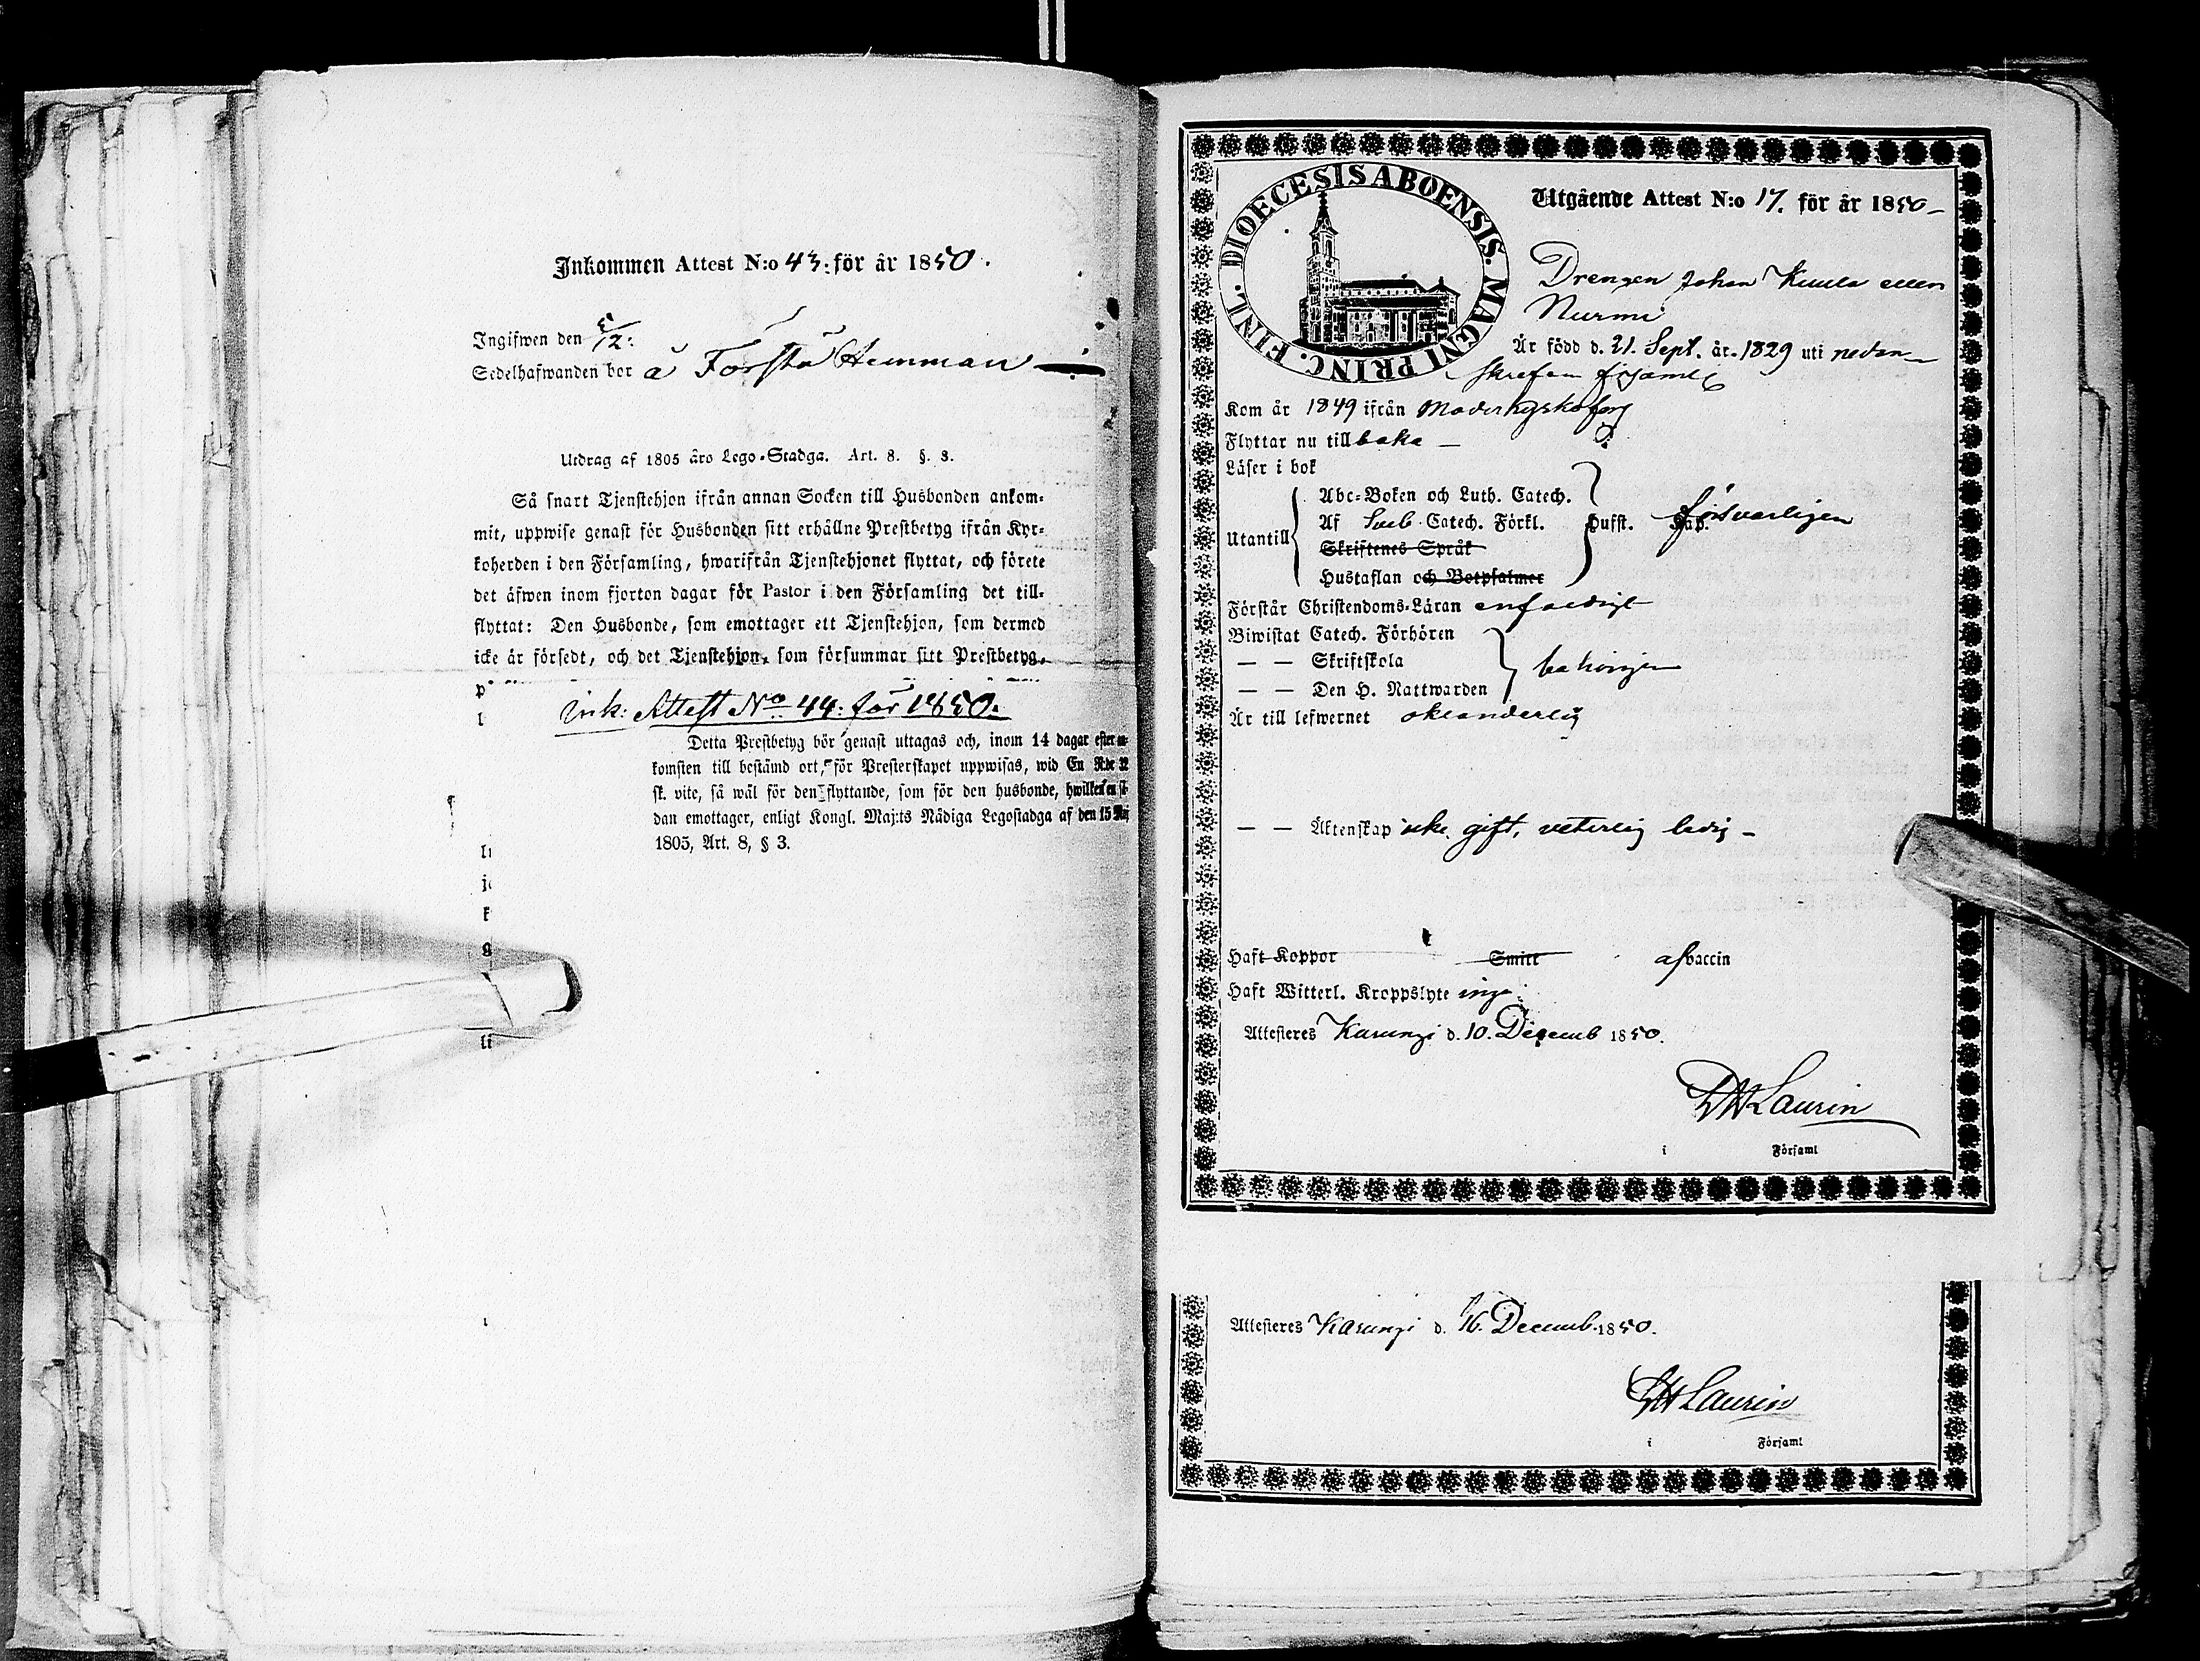 Inkommen Attest N:o 43: för år 1850.
Ingifwen den 5/12:
Sedelhafwanden bor å Första Hemman
Utdrag af 1805 års Lego-Stadga. Art. 8. §. 3.
Så snart Tjenstehjon ifrån annan Socken till Husbonden ankom-
mit, uppwise genast för Husbonden sitt erhållne Prestbetyg ifrån Kyr-
koherden i den Församling, hwarifrån Tjenstehjonet flyttat, och förete
det äfwen inom fjorton dagar för Pastor i den Församling det till-
flyttat: Den Husbonde, som emottager ett Tjenstehjon, som dermed
icke är försedt, och det Tjenstehjon, som försummar sitt Prestbetyg,
Ink: Attest No 44: för 1850.
Detta Prestbetyg bör genast uttagas och, inom 14 dagar efter an-
komsten till bestämd ort, för Presterskapet uppwisas, wid En Rdr 32
sk. vite, så wäl för den flyttande, som för den husbonde, hwilken en så-
dan emottager, enligt Kongl. Maj:ts Nådiga Legostadga af den 15 Maj
1805, Art. 8, § 3.
DIOECESIS ABOENSIS. MAGNI PRINC. FINL.
Utgående Attest N:o 17. för år 1850
Drengen Johan Kuula eller
Nurmi
Är född d. 21. Sept. år 1829 uti nedan-
skrefen församl
Kom år 1849 ifrån
Flyttar nu tillbaka
Läser i bok
Utantill
Abc-Boken och Luth. Catech.
Af Sveb. Catech. Förkl. Hufst. Kap. försvarligen
Skriftenes Språk
Hustaflan och Botpsalmer
Förstår Christendoms-Läran enfaldigt
Biwistat Catech. Förhören
— — Skriftskola
— — Den H. Nattwarden
behörigen
Är till lefwernet oklanderlig
— — Äktenskap icke gift, veterlig ledig
Haft Koppor Smitt af vaccin
Haft Witterl. Kroppslyte inga
Attesteres Karungi d. 10. Decemb 1850.
Laurin
i Församl
Attesteres Karungi d. 16. Decemb. 1850.
Laurin
i Församl